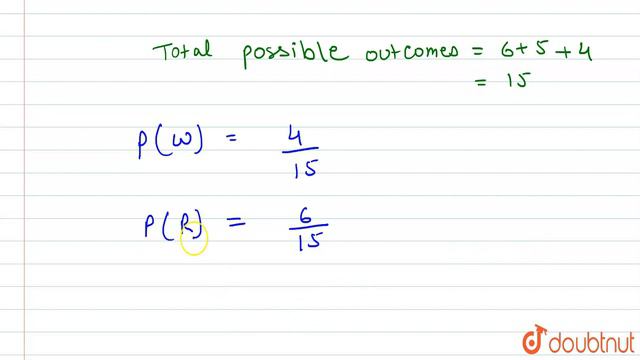 Total possible outcomes = 6+5+4
= 15
P(W) = 4/15
P(R) = 6/15
doubtnut